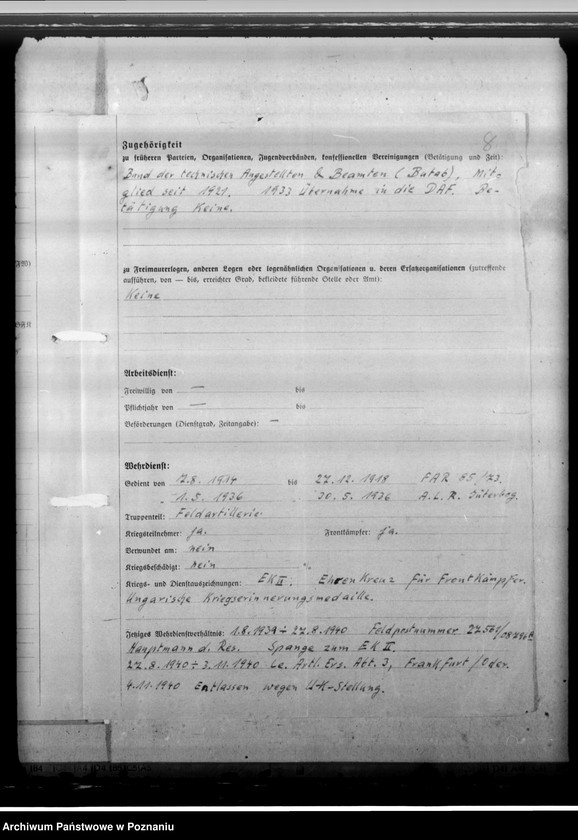 8
Zugehörigkeit
zu früheren Parteien, Organisationen, Jugendverbänden, konfessionellen Vereinigungen (Betätigung und Zeit):
Bund der technischen Angestellten & Beamten (Butab), Mit-
glied seit 1921. 1933 Übernahme in die DAF. Be-
tätigung Keine.
zu Freimaurerlogen, anderen Logen oder logenähnlichen Organisationen u. deren Ersatzorganisationen (zutreffende
ausführen, von — bis, erreichter Grad, bekleidete führende Stelle oder Amt):
Keine
Arbeitsdienst:
Freiwillig von — bis
Pflichtjahr von — bis
Beförderungen (Dienstgrad, Zeitangabe): —
Wehrdienst:
Gedient von 12.8.1914 bis 27.12.1918 FAR 85/23.
" 1.5.1936 " 30.5.1936 A.L.R. Jüterbog.
Truppenteil: Feldartillerie
Kriegsteilnehmer: ja. Frontkämpfer: ja.
Verwundet am: nein
Kriegsbeschädigt: nein
Kriegs- und Dienstauszeichnungen: EK II; Ehrenkreuz für Frontkämpfer.
Ungarische Kriegserinnerungsmedaille.
Jetziges Wehrdienstverhältnis: 1.8.1939 ÷ 27.8.1940 Feldpostnummer
Hauptmann d. Res. Spange zum EK II.
27.8.1940 ÷ 3.11.1940 Le. Artl. Ers. Abt. 3, Frankfurt/Oder.
4.11.1940 Entlassen wegen U-K-Stellung.
Archiwum Państwowe w Poznaniu